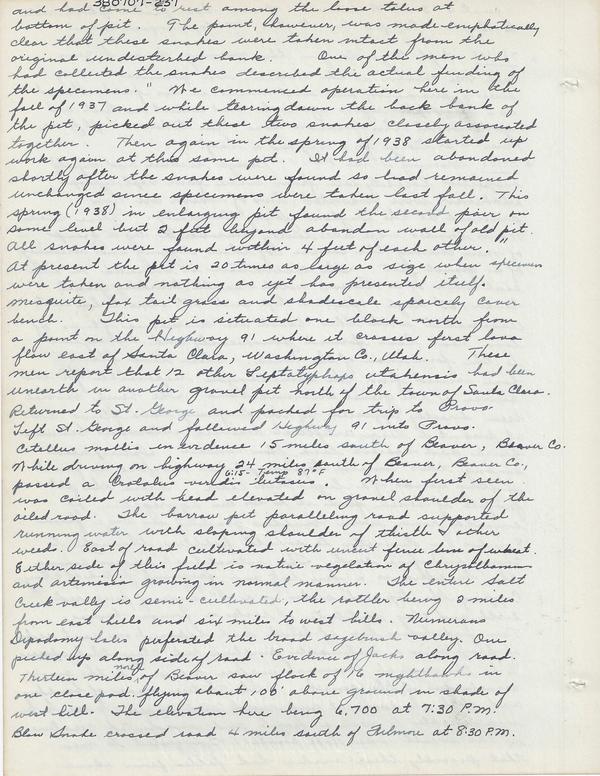 380707-237
and had come to rest among the loose talus at
bottom of pit. The point, however, was made emphatically
clear that these snakes were taken intact from the
original undisturbed bank. One of the men who
had collected the snakes described the actual finding of
the specimens. "We commenced operation here in the
fall of 1937 and while tearing down the back bank of
the pit, picked out these two snakes closely associated
together. Then again in the spring of 1938 started up
work again at this same pit. It had been abandoned
shortly after the snakes were found so had remained
unchanged since specimens were taken last fall. This
spring (1938) in enlarging pit found the second pair on
same level but 2 feet beyond abandon wall of old pit.
All snakes were found within 4 feet of each other."
At present the pit is 20 times as large as size when specimens
were taken and nothing as yet has presented itself.
Mesquite, fox tail grass and shadscale sparcely cover
bench. This pit is situated one block north from
a point on the Highway 91 where it crosses first lava
flow east of Santa Clara, Washington Co., Utah. These
men report that 12 other Leptotyphops utahensis had been
unearth in another gravel pit north of the town of Santa Clara.
Returned to St. George and packed for trip to Provo.
Left St. George and followed Highway 91 into Provo.
Citellus mollis in evidence 15 miles south of Beaver, Beaver Co.
While driving on highway 24 miles south of Beaver, Beaver Co.,
6:15- Temp 87°F
passed a Crotalus viridis lutosus. When first seen
was coiled with head elevated on gravel shoulder of the
oiled road. The barrow pit paralleling road supported
running water with sloping shoulder of thistle & other
weeds. East of road cultivated with uncut fence line of wheat.
Either side of this field is native vegetation of Chrysothamnus
and artemisia growing in normal manner. The entire Salt
Creek valley is semi-cultivated, the rattler being 2 miles
from east hills and six miles to west hills. Numerous
Dipodomy holes perferated the broad sagebush valley. One
picked up along side of road. Evidence of Jacks along road.
Thirteen miles north of Beaver saw flock of 16 nighthawks in
one close pod flying about 100' above ground in shade of
west hill. The elevation here being 6,700 at 7:30 P.M.
Blow Snake crossed road 4 miles south of Filmore at 8:30 P.M.